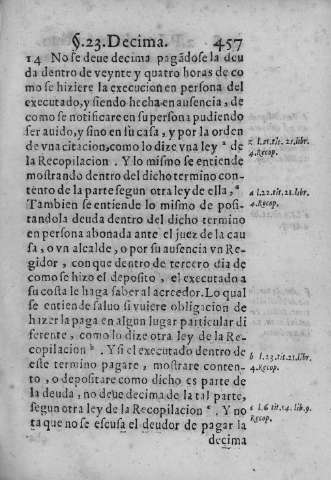 §.23.Decima. 457
14 No se deue decima pagãdose la deu
da dentro de veynte y quatro horas de co
mo se hiziere la execucion en persona del
executado, y siendo hecha en ausencia, de
como se notificare en su persona pudiendo
ser auido, y sino en su casa, y por la orden
de vna citacion, como lo dize vna ley z de
la Recopilacion. Y lo mismo se entiende
mostrando dentro del dicho termino con-
tento de la parte segun otra ley de ella, a
Tambien se entiende lo mismo de posi-
tandola deuda dentro del dicho termino
en persona abonada ante el juez de la cau
sa, o vn alcalde, o por su ausencia vn Re-
gidor, con que dentro de tercero dia de
como se hizo el deposito, el executado a
su costa le haga saber al acreedor. Lo qual
se entiende saluo si vuiere obligacion de
hazer la paga en algun lugar particular di
ferente, como lo dize otra ley de la Re-
copilacion b. Y si el executado dentro de
este termino pagare, mostrare conten-
to, o depositare como dicho es parte de
la deuda, no deue decima de la tal parte,
segun otra ley de la Recopilacion c. Y no
ta que no se escusa el deudor de pagar la
decima
z l.21.tit.21.libr.
4.Recop.
a l.22.tit.21.libr.
4.Recop.
b l.23.tit.21.libr.
4.Recop.
c l.6 tit.14.lib.9.
Recop.